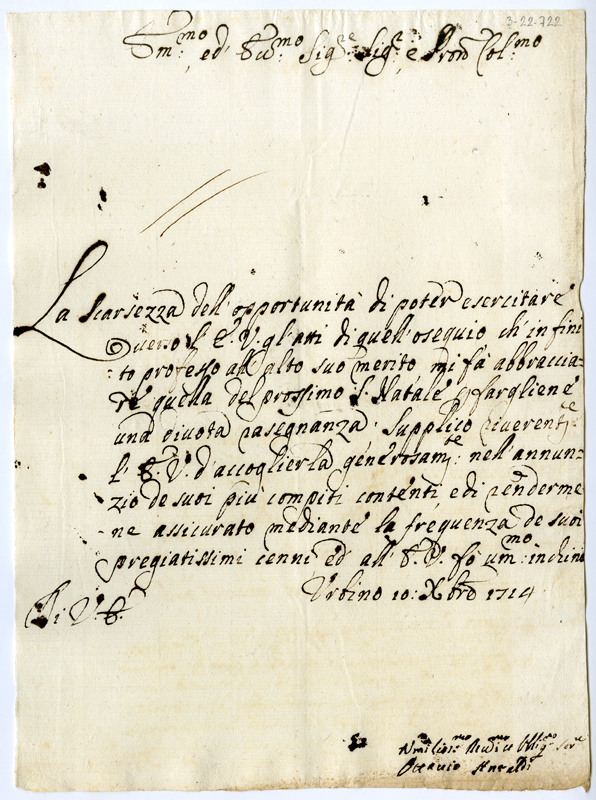 3-22-722
Em:mo ed Ecc:mo Sig:e Sig:r e Pron Col:mo
La scarsezza dell'opportunità di poter esercitare
verso l'E.V. gl'atti di quell'osequio, ch'infini
to professo all'alto suo merito mi fà abbraccia=
re quella del prossimo S. Natale p fargliene
una divota rasegnanza. Supplico riverent:te
l'E.V. d'accoglierla generosam:te nell'annun=
zio de suoi più compiti contenti, e di renderme
ne assicurato mediante la frequenza de suoi
pregiatissimi cenni ed all'E.V. fò um:mo inchino
Urbino 10: Xbre 1714
Di V.E.
Umilis:mo Obblig:mo Ser:re
Ottavio Antaldi